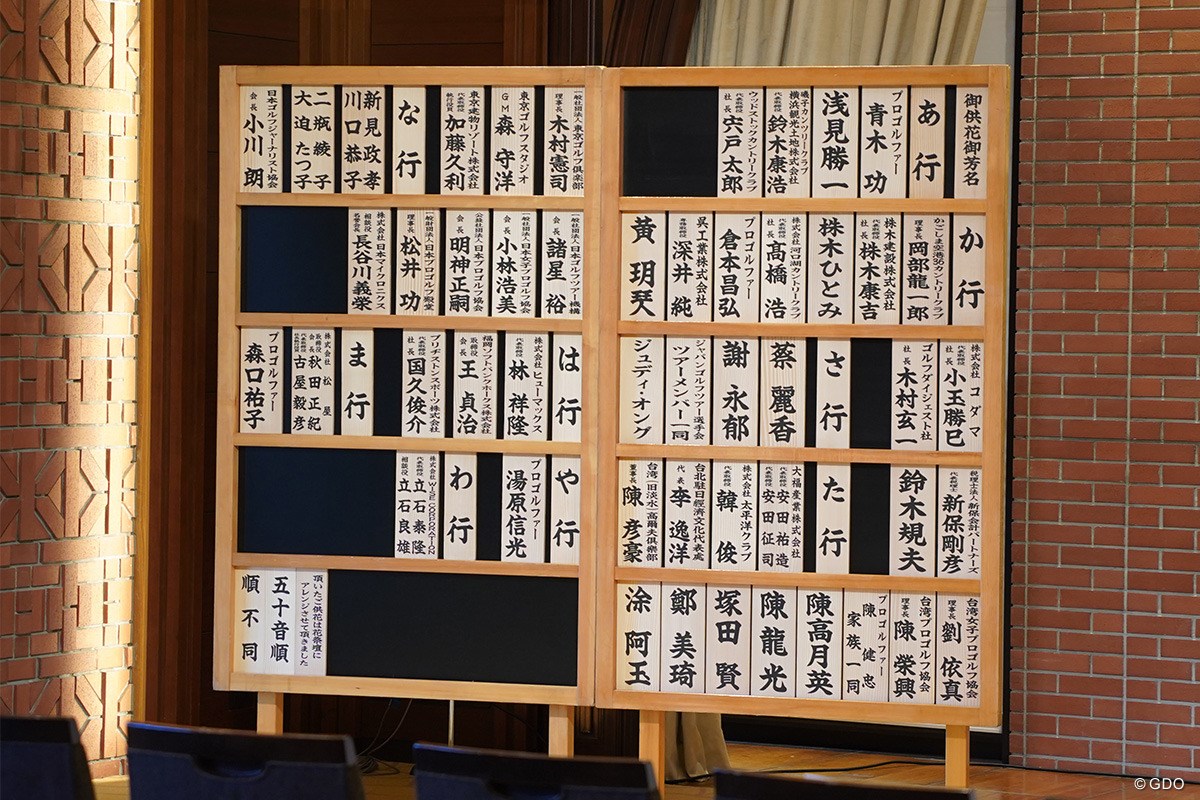 御供花御芳名
あ行
プロゴルファー
青木 功
浅見勝一
磯子カンツリークラブ
横浜観光土地株式会社
代表取締役
鈴木康浩
ウッドストックカントリークラブ
社長
宍戸太郎
か行
かごしま空港36カントリークラブ
理事長
岡部龍一郎
株木建設株式会社
代表取締役
株木康吉
株木ひとみ
株式会社 河口湖カントリークラブ
代表取締役
髙橋 浩
プロゴルファー
倉本昌弘
呉工業株式会社
専務取締役
深井 純
黄 玥琴
株式会社 コダマ
会長
小玉勝巳
ゴルフダイジェスト社
社長
木村玄一
さ行
蔡 麗香
謝 永郁
ジャパンゴルフツアー選手会
ツアーメンバー一同
ジュディ・オング
税理士法人 新保会計パートナーズ
代表税理士
新保剛彦
鈴木規夫
た行
大福産業株式会社
代表取締役 安田祐造
代表取締役 安田征司
株式会社 太平洋クラブ
代表取締役
韓 俊
台北駐日經濟文化代表處
代表
李 逸洋
台湾(旧淡水)高爾夫倶楽部
董事長
陳 彦豪
台湾女子プロゴルフ協会
理事長
劉 依真
台湾プロゴルフ協会
理事長
陳 榮興
プロゴルファー
陳 健忠
家族一同
陳高月英
陳 龍光
塚田 賢
鄭 美琦
涂 阿玉
一般社団法人 東京ゴルフ倶楽部
理事長
木村憲司
東京ゴルフスタジオ
GM
森 守洋
東京建物リゾート株式会社
代表取締役
執行役員
加藤久利
な行
新見政孝
川口恭子
二瓶綾子
大迫たつ子
日本ゴルフジャーナリスト協会
会長
小川 朗
一般社団法人 日本ゴルフツアー機構
会長
諸星 裕
一般社団法人 日本女子プロゴルフ協会
会長
小林浩美
公益社団法人 日本プロゴルフ協会
会長
明神正嗣
一般財団法人 日本プロゴルフ殿堂
理事長
松井 功
株式会社 日本マイクロニクス
相談役
名誉会長
長谷川義榮
は行
株式会社 ヒューマックス
林 祥隆
福岡ソフトバンクホークス株式会社
取締役
会長
王 貞治
ブリヂストンスポーツ株式会社
代表取締役
社長
国久俊介
ま行
株式会社 松屋
取締役
会長
秋田正紀
代表取締役
社長執行役員
古屋毅彦
プロゴルファー
森口祐子
や行
プロゴルファー
湯原信光
わ行
株式会社 WISE CORPORATION
代表取締役 立石泰隆
相談役 立石良雄
頂いたご供花は花祭壇に
アレンジさせて頂きました
五十音順
順不同
© GDO